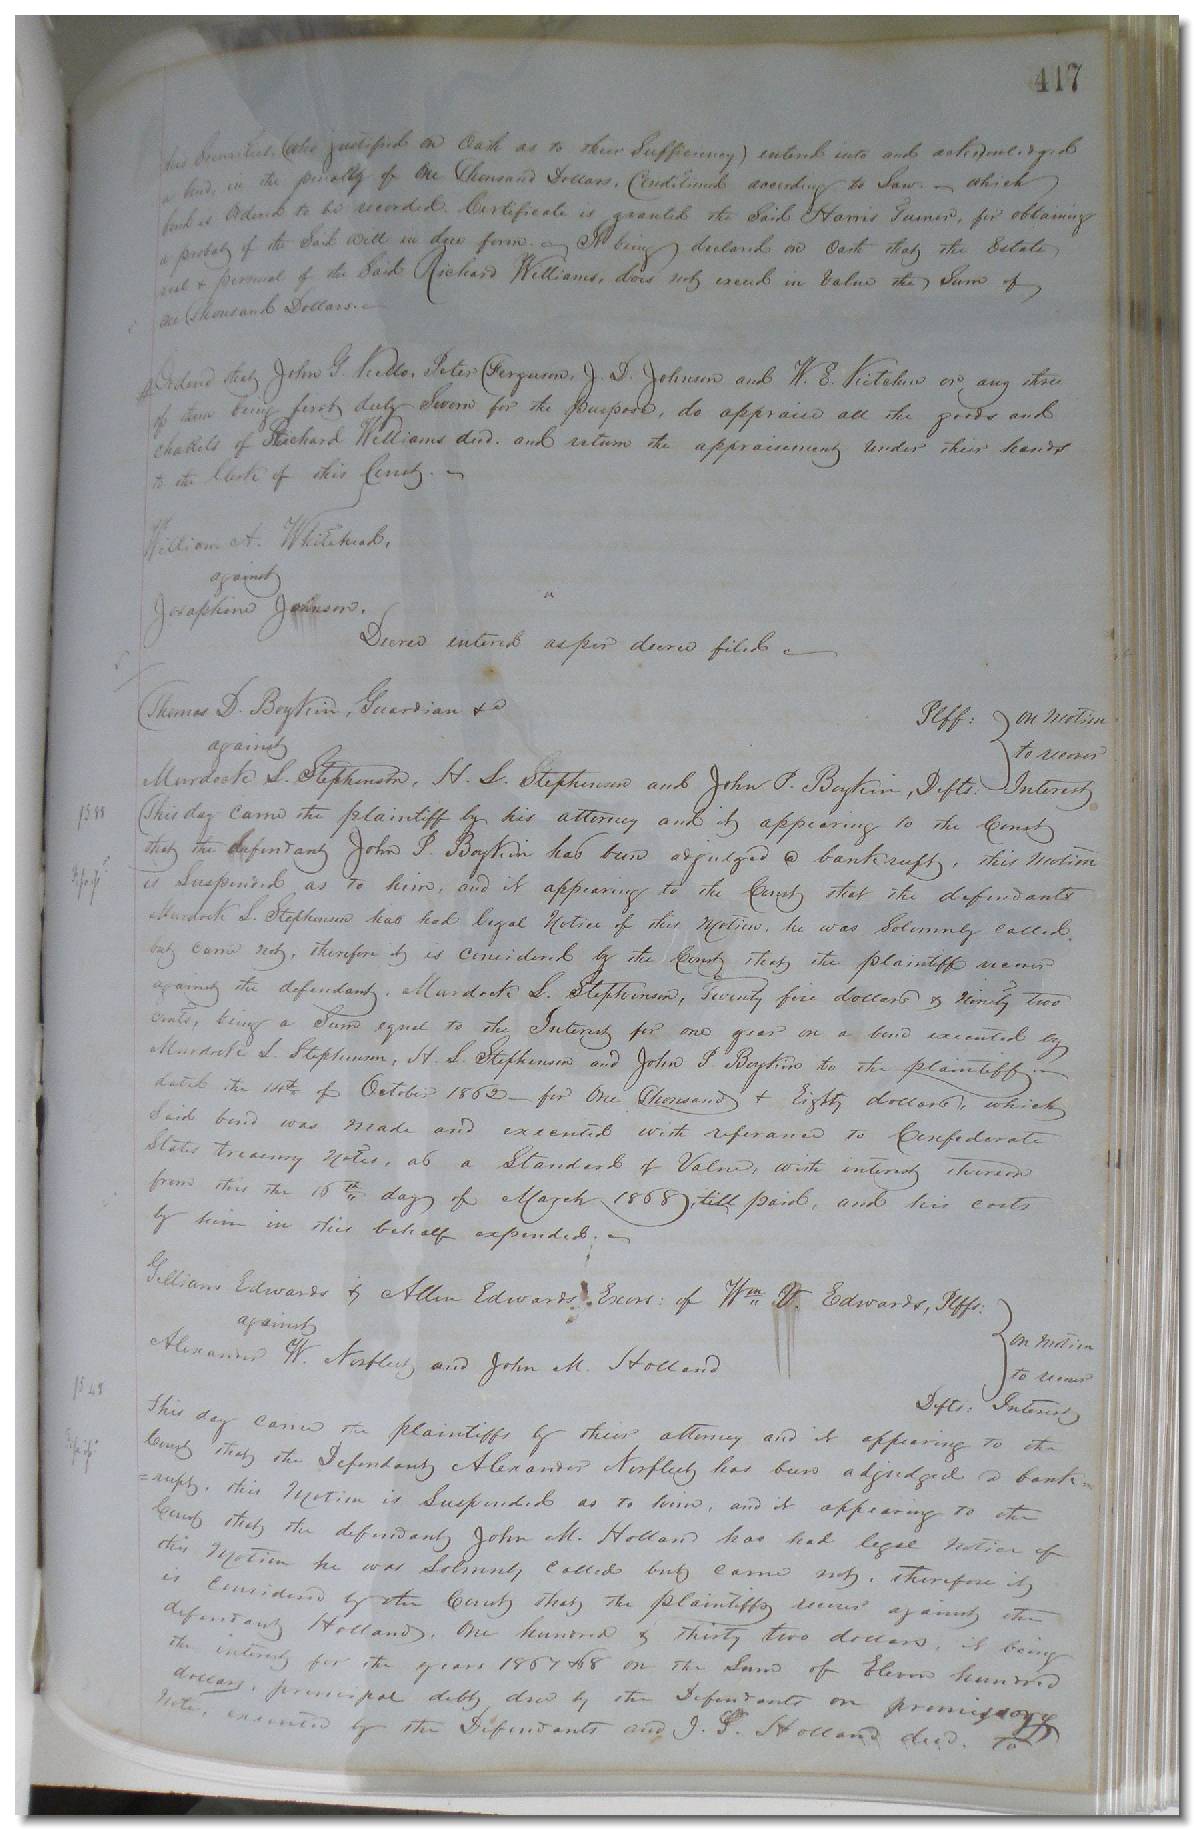 417
his Securities, (who justified on Oath as to their Sufficiency) entered into and acknowledged
a bond, in the penalty of One Thousand Dollars, Conditioned according to Law. which
bond is Ordered to be recorded. Certificate is granted the Said Harris Turner, for obtaining
a probat of the Said will in due form. It being declared on Oath that the Estate
real & personal of the Said Richard Williams, does not exceed in Value the Sum of
one thousand Dollars.
Ordered that John G. Kello, Peter Ferguson, J. D. Johnson and W. E. Kitchen or any three
of them being first duly Sworn for the purpose, do appraise all the goods and
chattels of Richard Williams decd. and return the appraisement under their hands
to the Clerk of this Court.
William A. Whitehead,
against
Josaphine Johnson.
Decree entered as per decree filed
Thomas D. Boykin, Guardian &c Plff: on Motion
against to recover
Murdock L. Stephenson, H. L. Stephenson and John P. Boykin, Defts. Interest
This day came the plaintiff by his attorney and it appearing to the Court
that the defendant John P. Boykin has been adjudged a bankrupt, this Motion
is Suspended as to him, and it appearing to the Court that the defendants
Murdock L. Stephenson has had legal Notice of this Motion, he was Solemnly called,
but came not, therefore it is considered by the Court that the plaintiff recover
against the defendant, Murdock L. Stephenson, Twenty five dollars & Ninety two
cents, being a Sum equal to the Interest for one year on a bond executed by
Murdock L. Stephenson, H. L. Stephenson and John P. Boykin to the plaintiff
dated the 14th of October 1862 for One Thousand & Eighty dollars, which
Said bond was made and executed with referance to Confederate
States treasury Notes, as a Standard of Value, with interest thereon
from this the 16th day of March 1868, till paid, and his costs
by him in this behalf expended.
Gillium Edwards & Allen Edwards Exors: of Wm V. Edwards, Plffs:
against on Motion
Alexander W. Norfleet and John M. Holland to recover
Defts: Interest
This day came the plaintiffs by their attorney and it appearing to the
Court that the Defendant Alexander Norfleet has been adjudged a bank=
=rupt, this Motion is Suspended as to him, and it appearing to the
Court that the defendant John M. Holland has had legal Notice of
this Motion he was Solemnly called but came not, therefore it
is Considered by the Court that the plaintiffs recover against the
defendant Holland, One hundred & thirty two dollars, it being
the interest for the years 1867 & 68 on the Sum of Eleven hundred
dollars, principal debt due by the Defendants on promissory
Note, executed by the Defendants and J. G. Holland decd. to